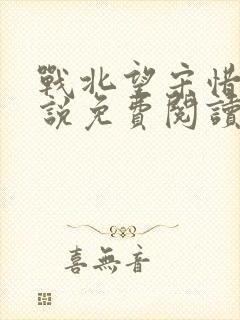 戰北望宋惜
說免費閱讀
喜無音